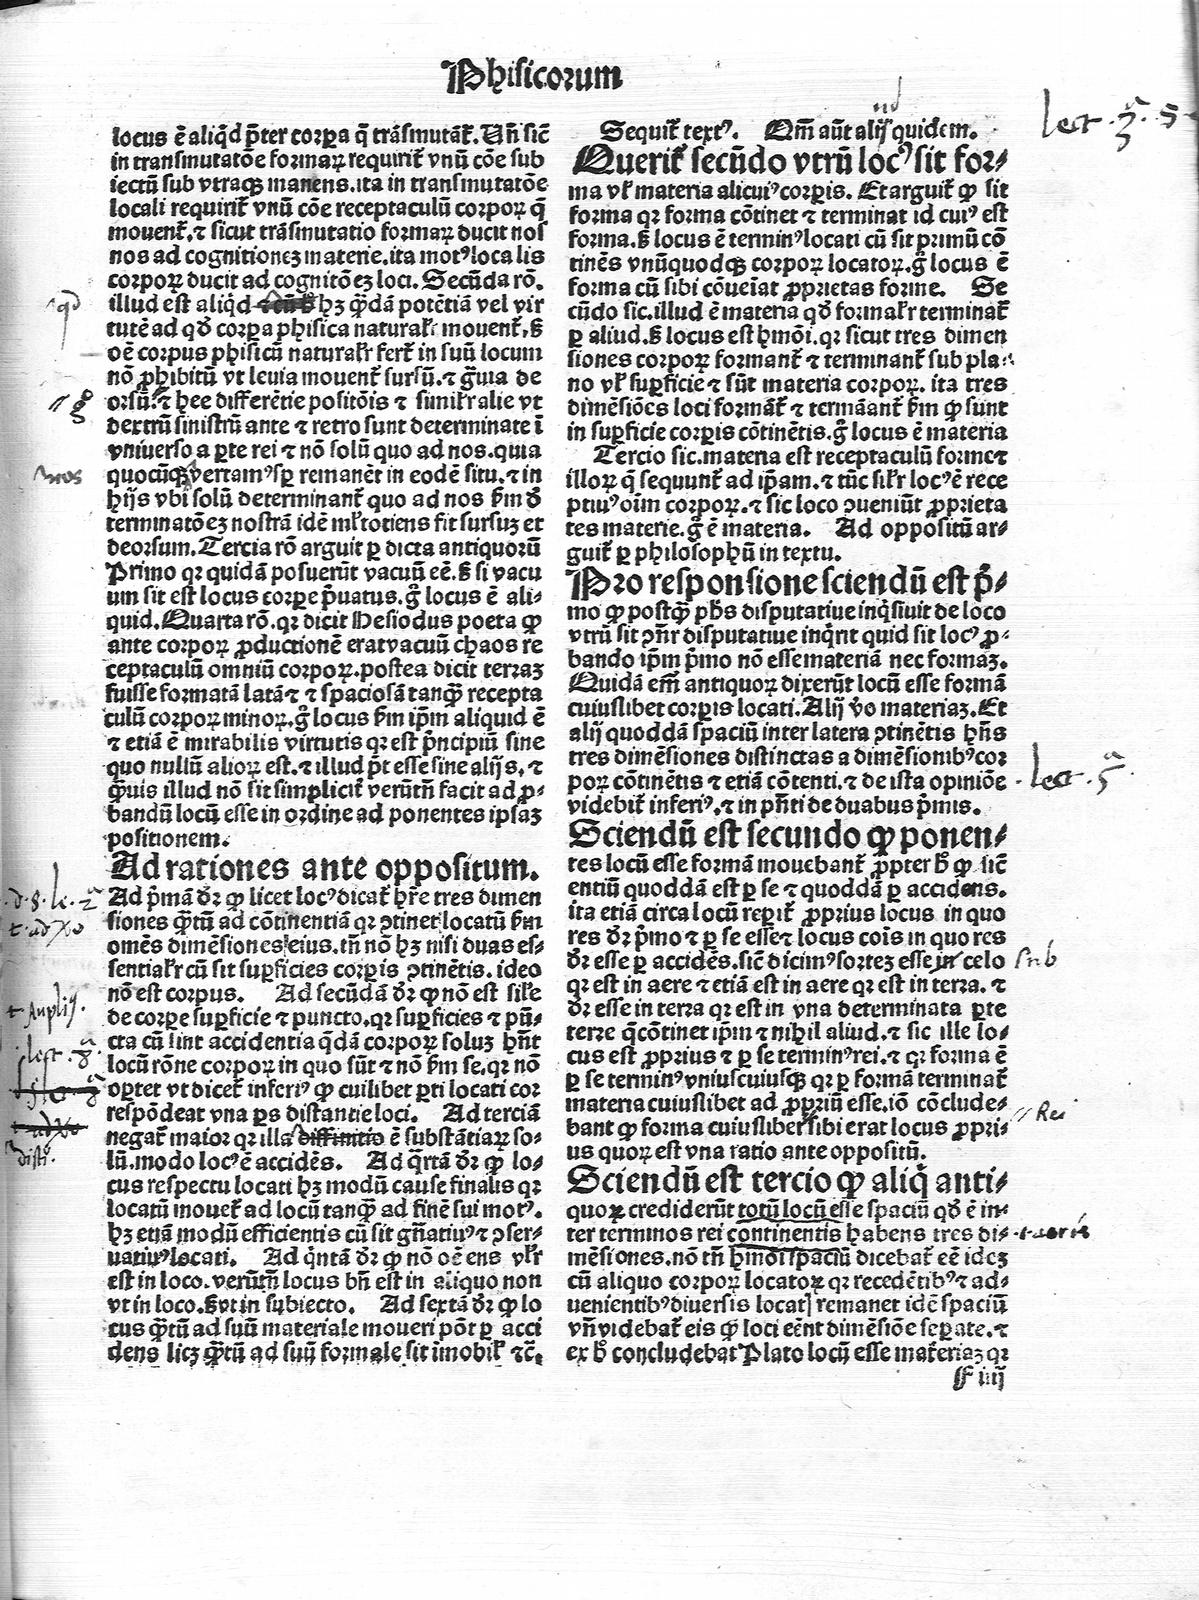 Phisicorum
locus ē aliq̄d p̄ter corꝑa q̄ trāsmutāt̄. Uñ sic̄
in transmutatōe formaꝝ requirit̄ vnū cōe sub
iectū sub vtraqꝫ manens. ita in transmutatōe
locali requirit̄ vnū cōe receptaculū corpoꝝ q̄
mouent̄. ⁊ sicut trāsmutatio formaꝝ ducit nos
nos ad cognitionez materie. ita motꝰ localis
corpoꝝ ducit ad cognitōez loci. Secūda rō.
illud est aliq̄d hꝫ q̄dā potētiā vel vir
tutē ad qd̄ corꝑa phisica naturalr̄ mouent̄. sꝫ
oē corpus phisicū naturalr̄ fert̄ in suū locum
nō ꝓhibitū vt leuia mouent̄ sursū. ⁊ g̃uia de
orsū. ⁊ hee differētie positōis ⁊ similr̄ alie vt
dextrū sinistrū ante ⁊ retro sunt determinate ī
vniuerso a ꝑte rei ⁊ nō solū quo ad nos. quia
quocūqꝫ vertamꝰ sꝑ remanēt in eodē situ. ⁊ in
hijs vbi solū determinant̄ quo ad nos ẜm d̄
terminatōez nostrā idē ml̄totiens fit sursuꝫ et
deorsum. Tercia rō arguit ꝑ dicta antiquorū
Primo qꝛ quidā posuerūt vacuū eē. sꝫ si vacu
um sit est locus corꝑe p̄uatus. g̊ locus ē ali⸗
quid. Quarta rō. qꝛ dicit Hesiodus poeta ꝙ
ante corpoꝝ ꝓductionē erat vacuū chaos re
ceptaculū omniū corpoꝝ. postea dicit terraꝫ
fuisse formatā latā ⁊ ⁊ spaciosā tanqꝫ̄ recepta
culū corpoꝝ minoꝝ. g̊ locus ẜm ip̄m aliquid ē
⁊ etiā ē mirabilis virtutis qꝛ est p̄ncipiū sine
quo nullū alioꝝ est. ⁊ illud p̄t esse sine alijs. ⁊
q̄uis illud nō sit simplicit̄ verūtñ facit ad ꝓ⸗
bandū locū esse in ordine ad ponentes ipsaꝫ
positionem.
Ad rationes ante oppositum.
Ad p̄mā dꝝ ꝙ licet locꝰ dicat̄ hr̄e tres dimen
siones q̄tū ad cōtinentiā qꝛ ↄtinet locatū ẜm
omēs dimēsiones eius. tñ nō hꝫ nisi duas es⸗
sentialr̄ cū sit suꝑficies corꝑis ↄtinētis. ideo
nō est corpus. Ad secūdā dꝝ ꝙ nō est sil̄e
de corꝑe suꝑficie ⁊ puncto. qꝛ suꝑficies ⁊ pū⸗
cta cū sint accidentia q̄dā corpoꝝ soluꝫ hn̄t
locū rōne corpoꝝ in quo sūt ⁊ nō ẜm se. qꝛ nō
oꝑtet vt dicet̄ inferiꝰ ꝙ cuilibet ꝑti locati cor
respōdeat vna ꝑs distantie loci. Ad terciā
negat̄ maior qꝛ illa diffinitio ē substātiaꝝ so⸗
lū. modo locꝰ ē accidēs. Ad q̄rtā dꝝ ꝙ lo⸗
cus respectu locati hꝫ modū cause finalis qꝛ
locatū mouet̄ ad locū tanqꝫ̄ ad finē sui motꝰ.
hꝫ etiā modū efficientis cū sit gn̄atiuꝰ ⁊ ↄser⸗
uatiuꝰ locati. Ad q̄ntā dꝝ ꝙ nō oē ens vl̄r
est in loco. verūtñ locus bn̄ est in aliquo non
vt in loco. sꝫ vt in subiecto. Ad sextā dꝝ ꝙ lo
cus q̄tū ad suū materiale moueri pōt ꝑ acci
dens licꝫ q̄tū ad suū formale sit īmobil̄ ⁊c̄.
Sequit̄ textꝰ. Qm̄ aūt alij quidem.
Querit̄ secūdo vtrū locꝰ sit for⸗
ma vl̄ materia alicuiꝰ corꝑis. Et arguit̄ ꝙ sit
forma qꝛ forma cōtinet ⁊ terminat id cuiꝰ est
forma. sꝫ locus ē terminꝰ locati cū sit primū cō
tinēs vnūquodqꝫ corpoꝝ locatoꝝ. g̊ locus ē
forma cū sibi cōueīat ꝓprietas forme. Se
cūdo sic. illud ē materia qd̄ formal̄r terminat̄
ꝑ aliud. sꝫ locus est hmōi. qꝛ sicut tres dimen
siones corpoꝝ formant̄ ⁊ terminant̄ sub pla⸗
no vl̄ suꝑficie ⁊ sūt materia corpoꝝ. ita tres
dimēsiōes loci formāt̄ ⁊ termāant̄ ẜm ꝙ sunt
in suꝑficie corꝑis cōtinētis. g̊ locus ē materia
Tercio sic. materia est receptaculū forme ⁊
illoꝝ q̄ sequunt̄ ad ip̄am. ⁊ tūc sil̄r locꝰ ē rece
ptiuꝰ oīm corpoꝝ. ⁊ sic loco ↄueniūt ꝓprieta
tes materie. g̊ ē materia. Ad oppositū ar⸗
guit̄ ꝑ philosophū in textu.
Pro responsione sciendū est p̄⸗
mo ꝙ postqꝫ̄ ph̄s disputatiue inq̄siuit de loco
vtrū sit ↄn̄r disputatiue inq̄rit quid sit locꝰ ꝓ⸗
bando ip̄m p̄mo nō esse materiā nec formaꝫ.
Quidā em̄ antiquoꝝ dixerūt locū esse formā
cuiuslibet corꝑis locati. Alij v̊o materiaꝫ. Et
alij quoddā spaciū inter latera ↄtinētis hn̄s
tres dimēsiones distinctas a dimēsionibꝰ cor
poꝝ cōtinētis ⁊ etiā cōtenti. ⁊ de ista opiniōe
videbit̄ inferiꝰ. ⁊ in pn̄ti de duabus p̄mis.
Sciendū est secundo ꝙ ponen⸗
tes locū esse formā mouebant̄ ꝓpter h̊ ꝙ sic̄
entiū quoddā est ꝑ se ⁊ quoddā ꝑ accidens.
ita etiā circa locū reꝑit̄ ꝓprius locus in quo
res dꝝ p̄mo ⁊ ꝑ se esse ⁊ locus cōis in quo res
dꝝ esse ꝑ accidēs. sic̄ dicimꝰ sortez esse in celo
qꝛ est in aere ⁊ etiā est in aere qꝛ est in terra. ⁊
dꝝ esse in terra qꝛ est in vna determinata ꝑte
terre q̄ cōtinet ip̄m ⁊ nihil aliud. ⁊ sic ille lo⸗
cus est ꝓprius ⁊ ꝑ se terminꝰ rei. ⁊ qꝛ forma ē
ꝑ se terminꝰ vniuscuiusqꝫ qꝛ ꝑ formā terminat̄
materia cuiuslibet ad ꝓpriū esse. iō cōclude⸗
bant ꝙ forma cuiuslibet sibi erat locus ꝓpri⸗
us quoꝝ est vna ratio ante oppositū.
Sciendū est tercio ꝙ aliq̄ anti⸗
quoꝝ crediderūt totū locū esse spaciū qd̄ ē in⸗
ter terminos rei continentis habens tres di⸗
mēsiones. nō tñ hmōi spaciū dicebat̄ eē idez
cū aliquo corpoꝝ locatoꝝ qꝛ recedētibꝰ ⁊ ad⸗
uenientibꝰ diuersis locat] remanet idē spaciū
vn̄ videbat̄ eis ꝙ loci eēnt dimēsiōe seꝑate. ⁊
ex h̊ concludebat Plato locū esse materiaꝫ qꝛ
F iiij
lect. 5
Rei
sub